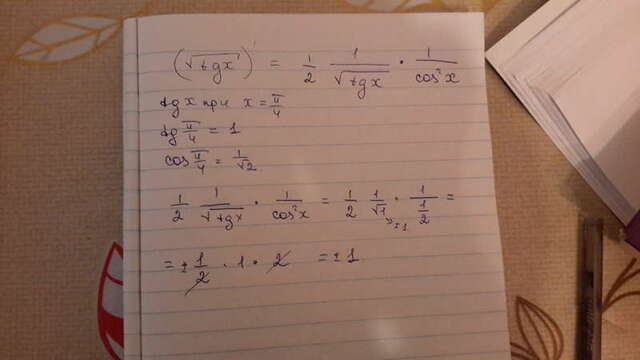 (√tgx)' = 1/2 1/√tgx · 1/cos²x
tg x при x = π/4
tg π/4 = 1
cos π/4 = 1/√2
1/2 1/√tgx · 1/cos²x = 1/2 1/√1 · 1/(1/2) =
=±1
= ± 1/2 · 1 · 2 = ± 1